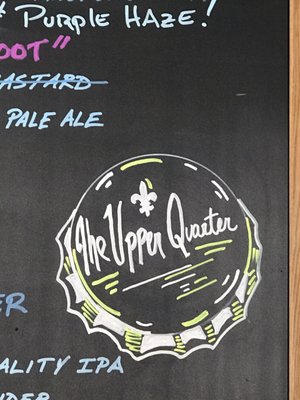 & PURPLE HAZE!
OOT"
ASTARD
PALE ALE
The Upper Quarter
ER
ALITY IPA
NDER